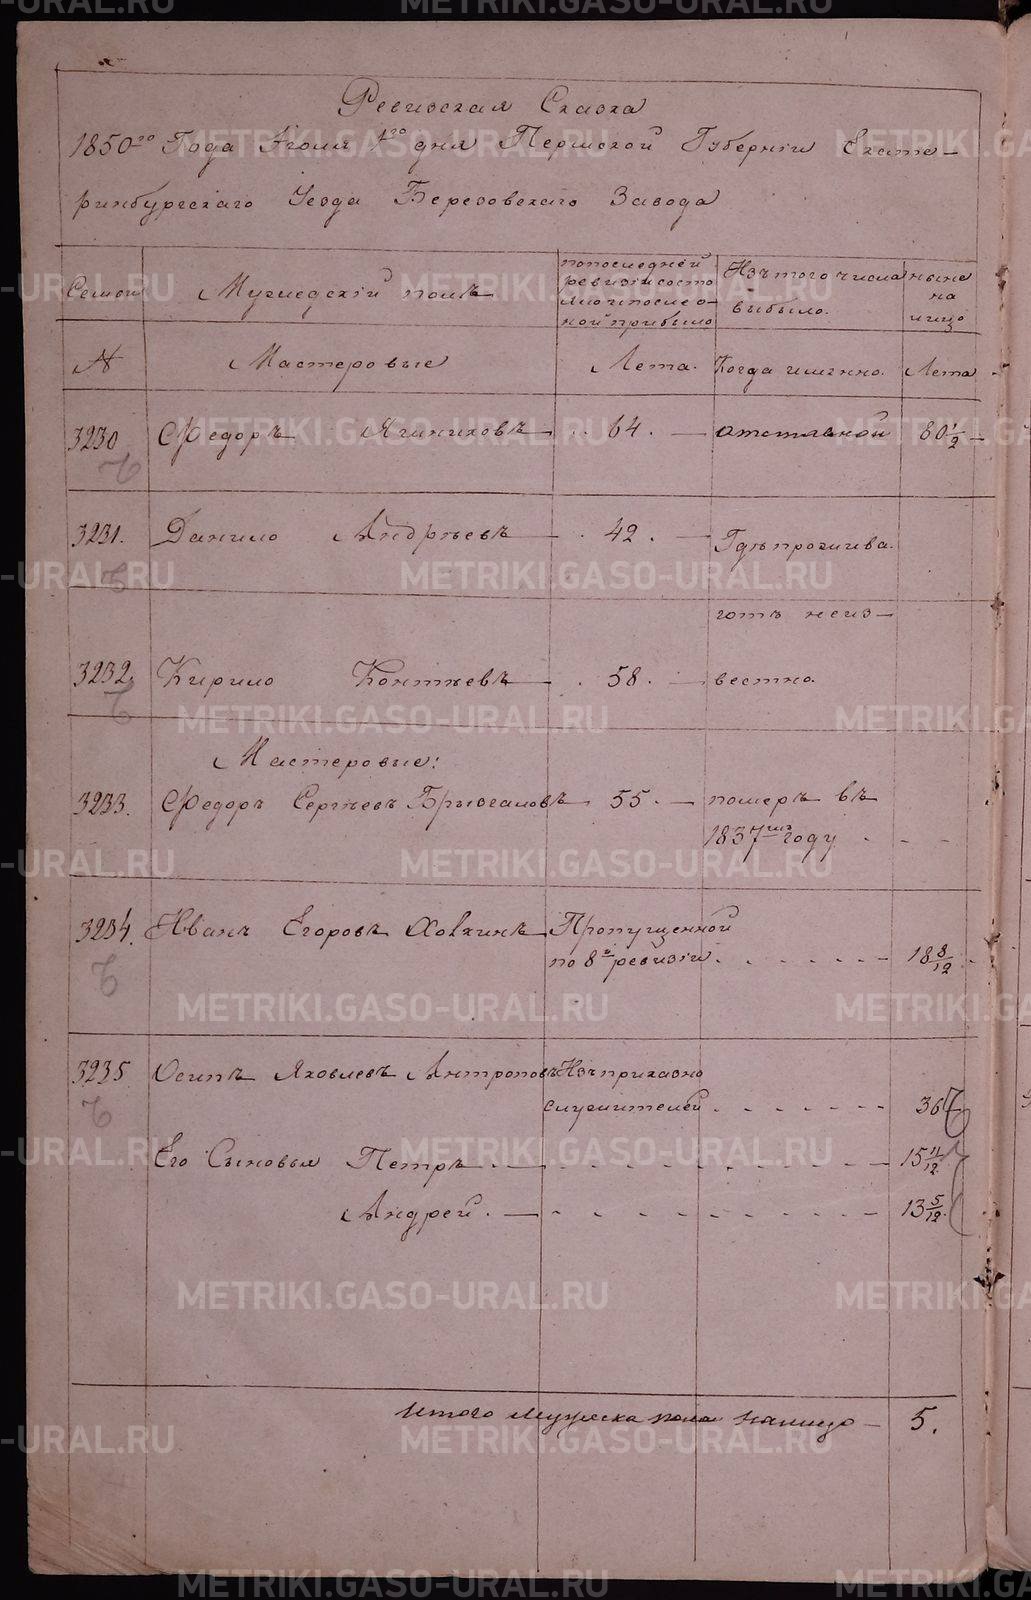 Ревизская Сказка
1850го Года Июля 1го дня Пермской Губернiи Екате-
ринбургскаго Уезда Березовскаго Завода
Семьи
Мужескiй полъ
по последней ревизiи состо яло и после о- ной прибыло
Изъ того числа выбыло.
ныне на лицо
№
Мастеровые
Лета.
Когда имянно.
Лета
3230 Федоръ 64. отставной 80 1/2
3231. Данило Андреевъ 42. Где прожива-
ютъ неиз-
3232. Кирило 58. вестно.
Мастеровые:
3233. Федоръ Сергеевъ 55. померъ въ
1837мъ году
3234. Иванъ Егоровъ Пропущенной
по 8й ревизiи 18 8/12
3235 Осипъ Яковлевъ Антроповъ Изъ приказно
служителей 36
Его Сыновья Петръ 15 11/12
Андрей. 13 5/12.
Итого мужеска пола налицо — 5.
METRIKI.GASO-URAL.RU